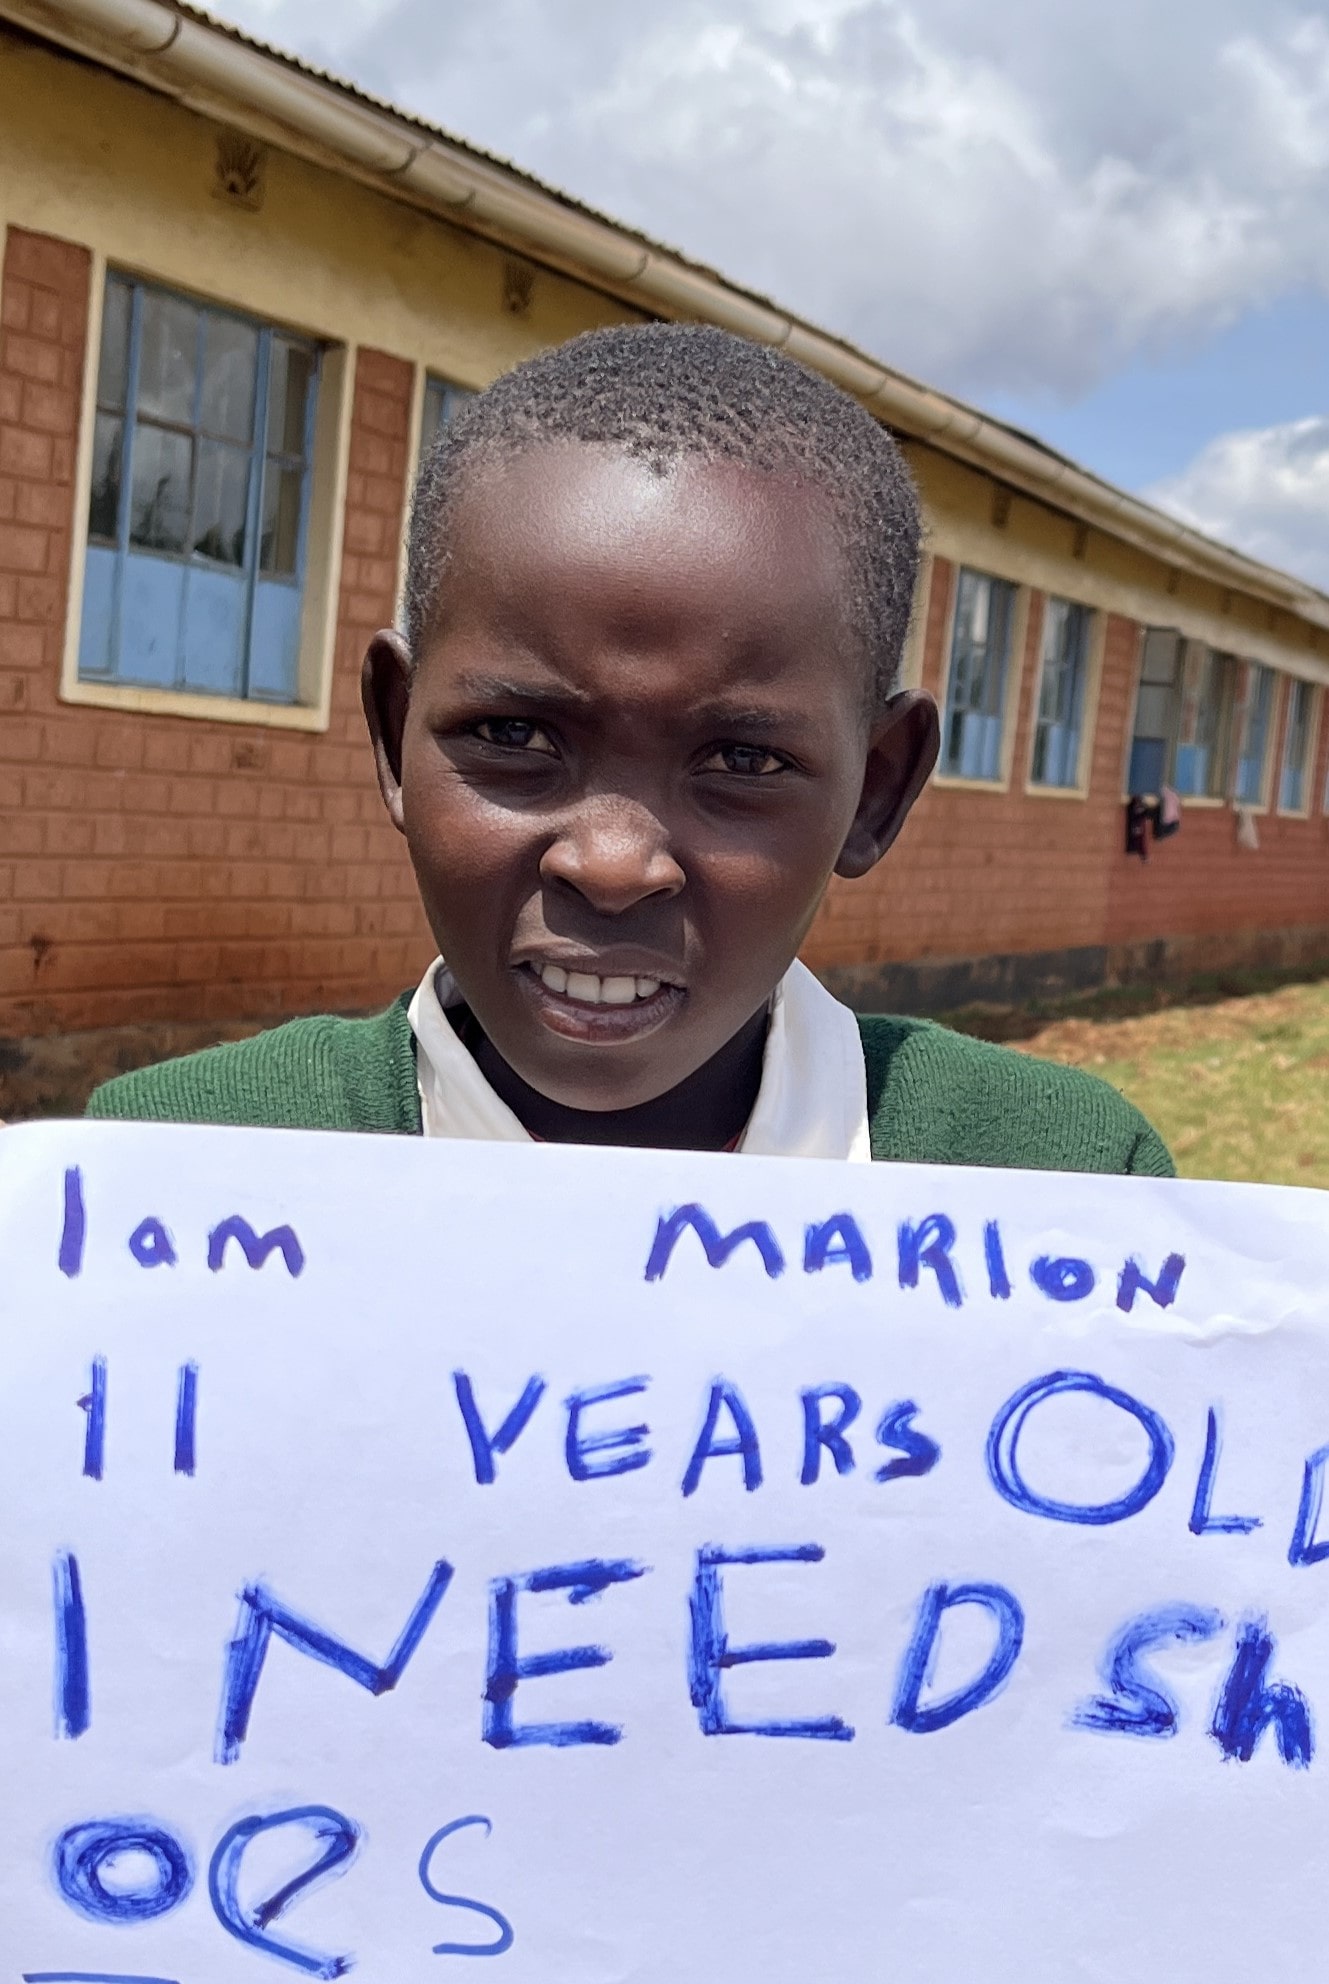 I am MARION
11 YEARS OLD
I NEED sh
oes